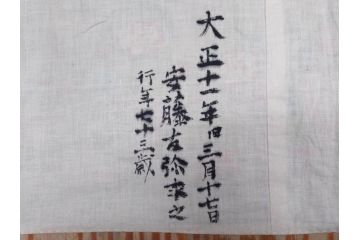 大正十一年旧三月十七日
安藤吉弥求之
行年七十三歳